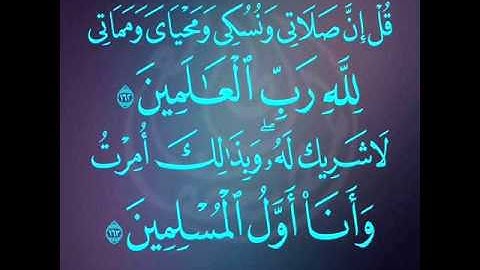 قُلْ إِنَّ صَلَاتِى وَنُسُكِى وَمَحْيَاىَ وَمَمَاتِى
لِلَّهِ رَبِّ ٱلْعَـٰلَمِينَ ١٦٢
لَا شَرِيكَ لَهُۥ ۖ وَبِذَٰلِكَ أُمِرْتُ
وَأَنَا۠ أَوَّلُ ٱلْمُسْلِمِينَ ١٦٣